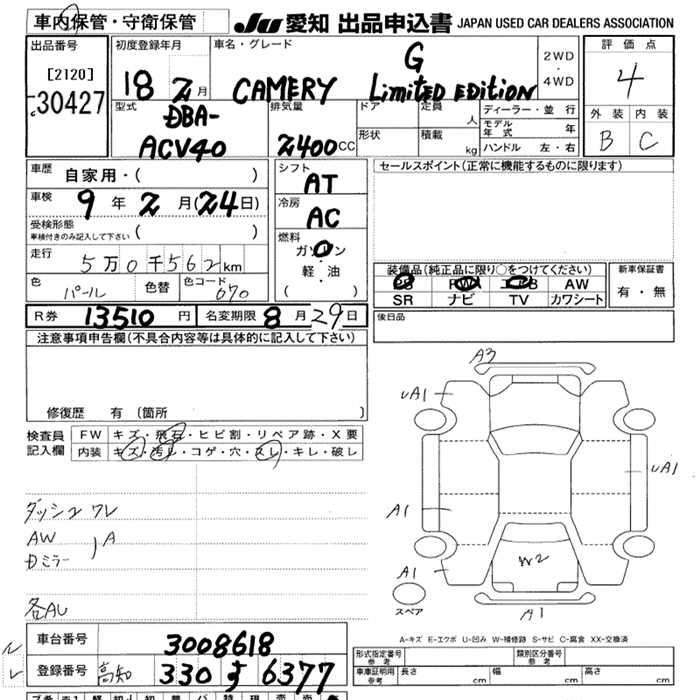 車内保管・守衛保管
JU 愛知 出品申込書 JAPAN USED CAR DEALERS ASSOCIATION
出品番号 初度登録年月 車名・グレード 評価点
[2120] 18 2月 CAMERY G Limited EDITION 2WD・4WD 4
30427
型式 排気量 ドア 定員 人 ディーラー・並行 外装 内装
DBA- モデル年式 年 B C
ACV40 2400CC 形状 積載 kg ハンドル 左・右
車歴 自家用・( ) シフト AT セールスポイント(正常に機能するものに限ります)
車検 9年 2月(24日) 冷房 AC
受検形態 ( )
車検付きのみ記入して下さい
燃料 ガソリン・軽・油 ( )
走行 5万0千562km
色 パール 色替 色コード 070
装備品(純正品に限り○をつけてください) 新車保証書
PS PW AW 有・無
SR ナビ TV カワシート
R券 13510円 名変期限 8月29日 後日品
注意事項申告欄(不具合内容等は具体的に記入して下さい)
修復歴 有 (箇所
検査員記入欄 FW キズ・飛石・ヒビ割・リペア跡・X要
内装 キズ・汚レ・コゲ・穴・スレ・キレ・破レ
ダッシュ ワレ
AW A
Dミラー
各AU
A3
uA1
uA1
A1
A1
W2
A1
スペア
A-キズ E-エクボ U-凹み W-補修跡 S-サビ C-腐食 XX-交換済
車台番号 3008618
登録番号 高知 330 す 6377
形式指定番号 参考 類別区分番号 参考
車庫証明用 参考 長さ cm 幅 cm 高さ cm